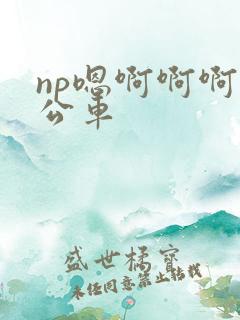 np嗯啊啊啊
公车
盛世橘宝
未经同意禁止转载